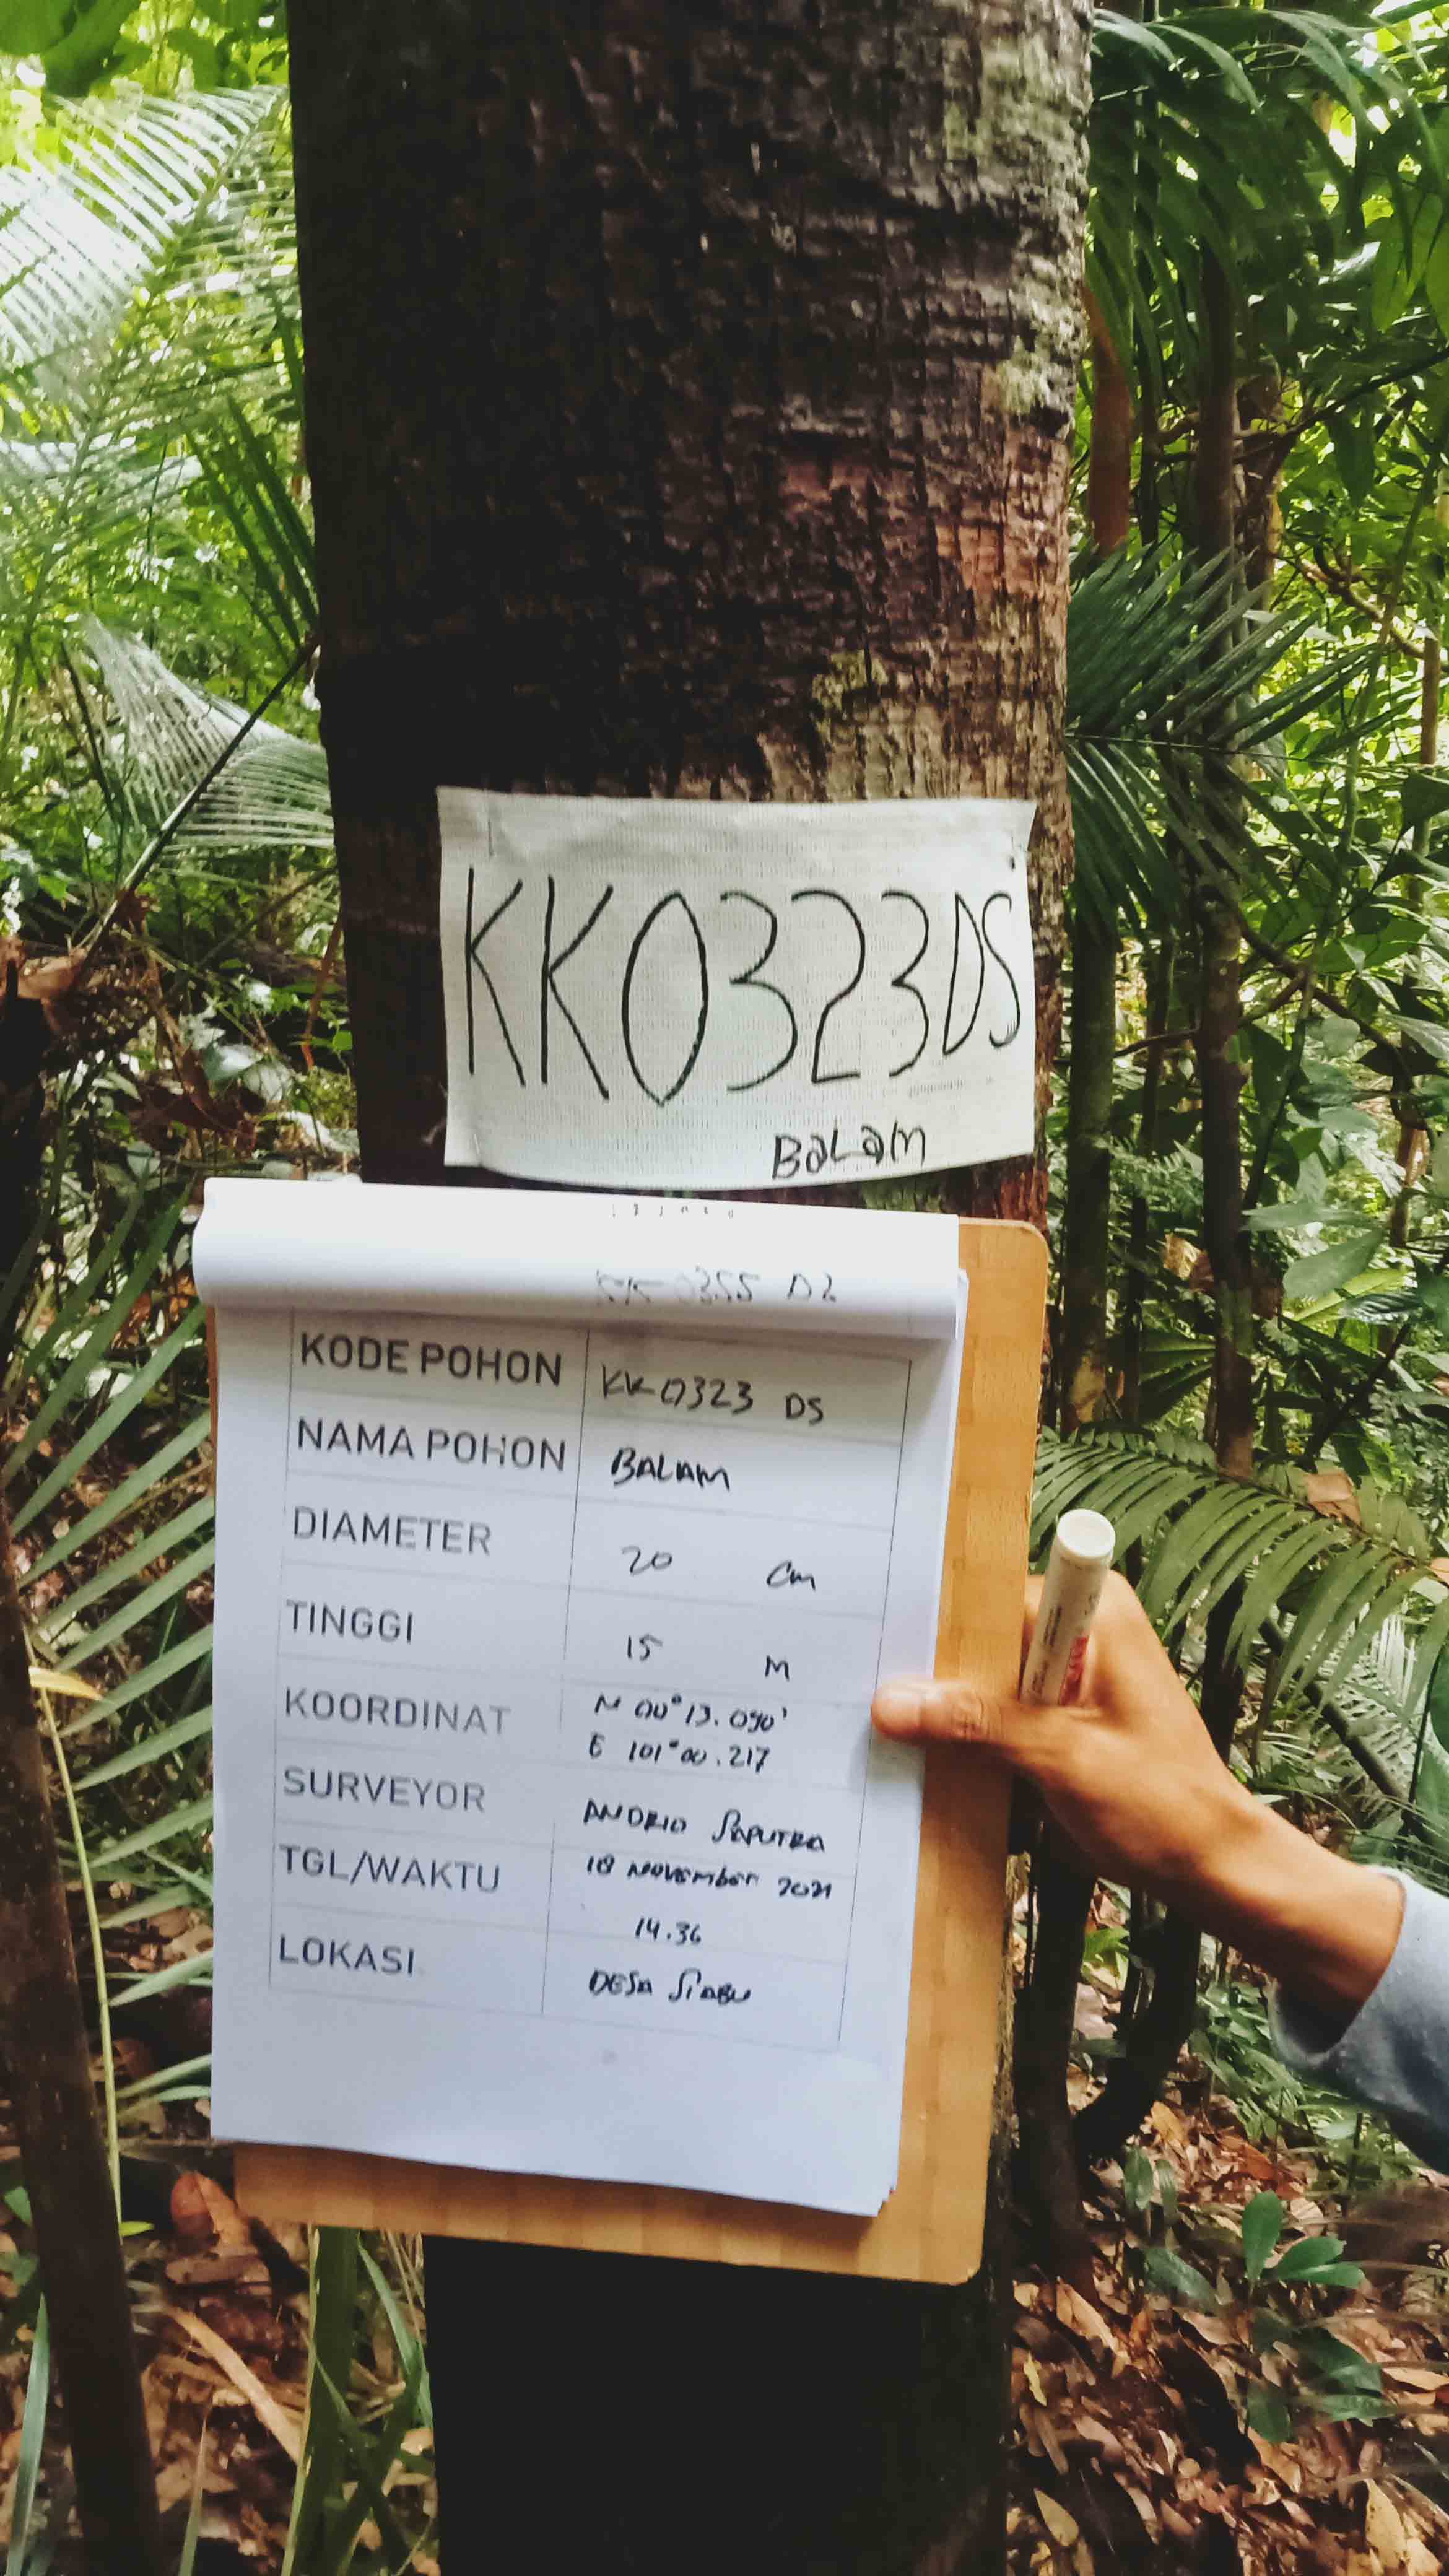 KK0323DS
BALAM
KODE POHON KK 0323 DS
NAMA POHON BALAM
DIAMETER 20 Cm
TINGGI 15 M
KOORDINAT N 00° 13. 090'
E 101° 00. 217
SURVEYOR ANDRIO SAPUTRA
TGL/WAKTU 18 November 2021
14.36
LOKASI DESA SIABU